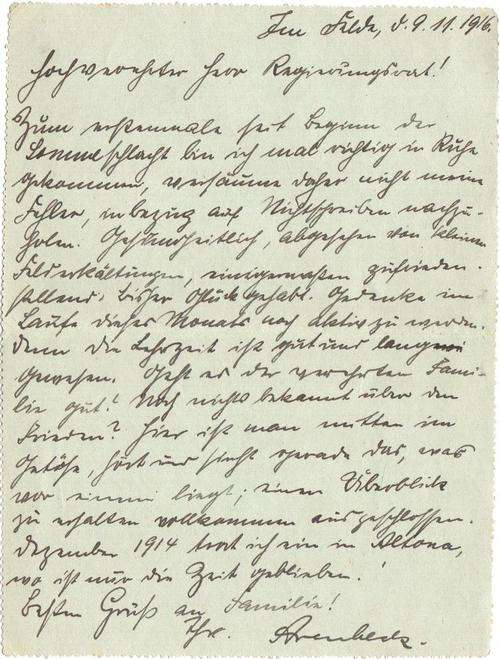 Im Felde, d. 9. 11. 1916.
Hochverehrter Herr Regierungsrat!
Zum erstenmale seit Beginn der
Sommeschlacht bin ich mal richtig in Ruhe
gekommen, versäume daher nicht meine
Fehler, inbezug auf Nichtschreiben nachzu-
holen. Gesundheitlich, abgesehen von kleinen
Felderkältungen, einigermaßen zufrieden-
stellend, bisher Glück gehabt. Gedenke im
Laufe dieses Monats noch aktiv zu werden.
denn die Lehrzeit ist gut und lang
gewesen. Geht es der verehrten Fami-
lie gut? Noch nichts bekannt über den
Frieden? Hier ist man mitten im
Getöse, hört und sieht gerade das, was
vor einem liegt; einen Überblick
zu erhalten vollkommen ausgeschlossen.
Dezember 1914 trat ich ein in Altona,
wo ist nur die Zeit geblieben!
Besten Gruß an Familie!
Ihr